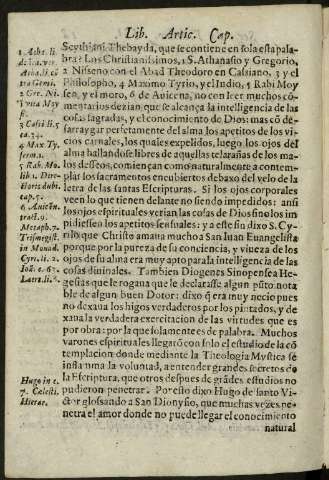 Lib. Artic. Cap.
Scythiani. Thebayda, que se contiene en sola esta pala-
bra? Los Christianissimos, 1 S. Athanasio y Gregorio,
2 Nisseno con el Abad Theodoro en Cassiano, 3 y el
Philosopho, 4 Maximo Tyrio, y el Indio, 5 Rabi Moy
sen, y el moro, 6 de Auicena, no con leer muchos cõ-
mentarios dezian que se alcança la intelligencia de las
cosas sagradas, y el conocimiento de Dios: mas cõ de-
sarraygar perfetamente del alma los apetitos de los vi-
cios carnales, los quales expelidos, luego los ojos del
alma hallandose libres de aquellas telarañas de los ma-
los desseos, comiençan como naturalmente a contem-
plar los sacramentos encubiertos debaxo del velo de la
letra de las santas Escripturas. Si los ojos corporales
veen lo que tienen delante no siendo impedidos: ansi
los ojos espirituales verian las cosas de Dios sino los im
pidiessen los apetitos sensuales: y a este fin dixo S. Cy-
rilo que Christo amaua mucho a San Iuan Euangelista
porque por la pureza de su conciencia, y viueza de los
ojos de su alma era muy apto para la intelligencia de las
cosas diuinales. Tambien Diogenes Sinopensea He-
gesias que le rogaua que le declarasse algun pũto nota
ble de algun buen Dotor: dixo q̃ era muy necio pues
no dexaua los higos verdaderos por los pintados, y de
xaua la verdadera exercitacion de las virtudes que es
por obra: por la que solamente es de palabra. Muchos
varones espirituales llegarõ con solo el estudio de la cõ
templacion donde mediante la Theologia Mystica se
inflamma la voluntad, a entender grandes secretos de
la Escriptura, que otros despues de grãdes estudios no
pudieron penetrar. Por esto dixo Hugo de santo Vi-
ctor glossando a San Dionysio, que muchas vezes pe-
netra el amor donde no puede llegar el conocimiento
natural
1 Atha. li.
Atha. li. cõ
tra Genti.
2 Gre. Ni.
in vita Moy
si.
3 Cassi li.5
ca. 34.
4 Max Ty.
serm. 1.
5 Rab. Mo.
lib. 1. Dire-
ctoris dubi.
cap. 5.
6 Auicẽn.
tract. 9.
Metaph. 7.
Trismegist.
in Monad.
Cyri. li. 2.
Ioã. c. 67.
Laert. li. 6.
Hugo in c.
7. Celesti.
Hierar.